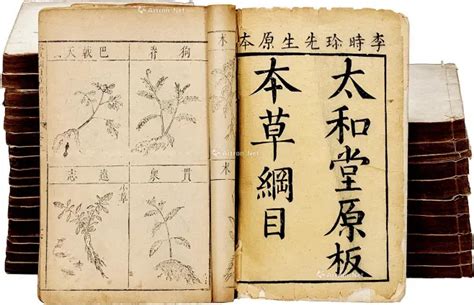 李時珍先生原本
太和堂原板
本草綱目
狗脊
巴戟天
貫衆
遠志
小草
Artron.Net